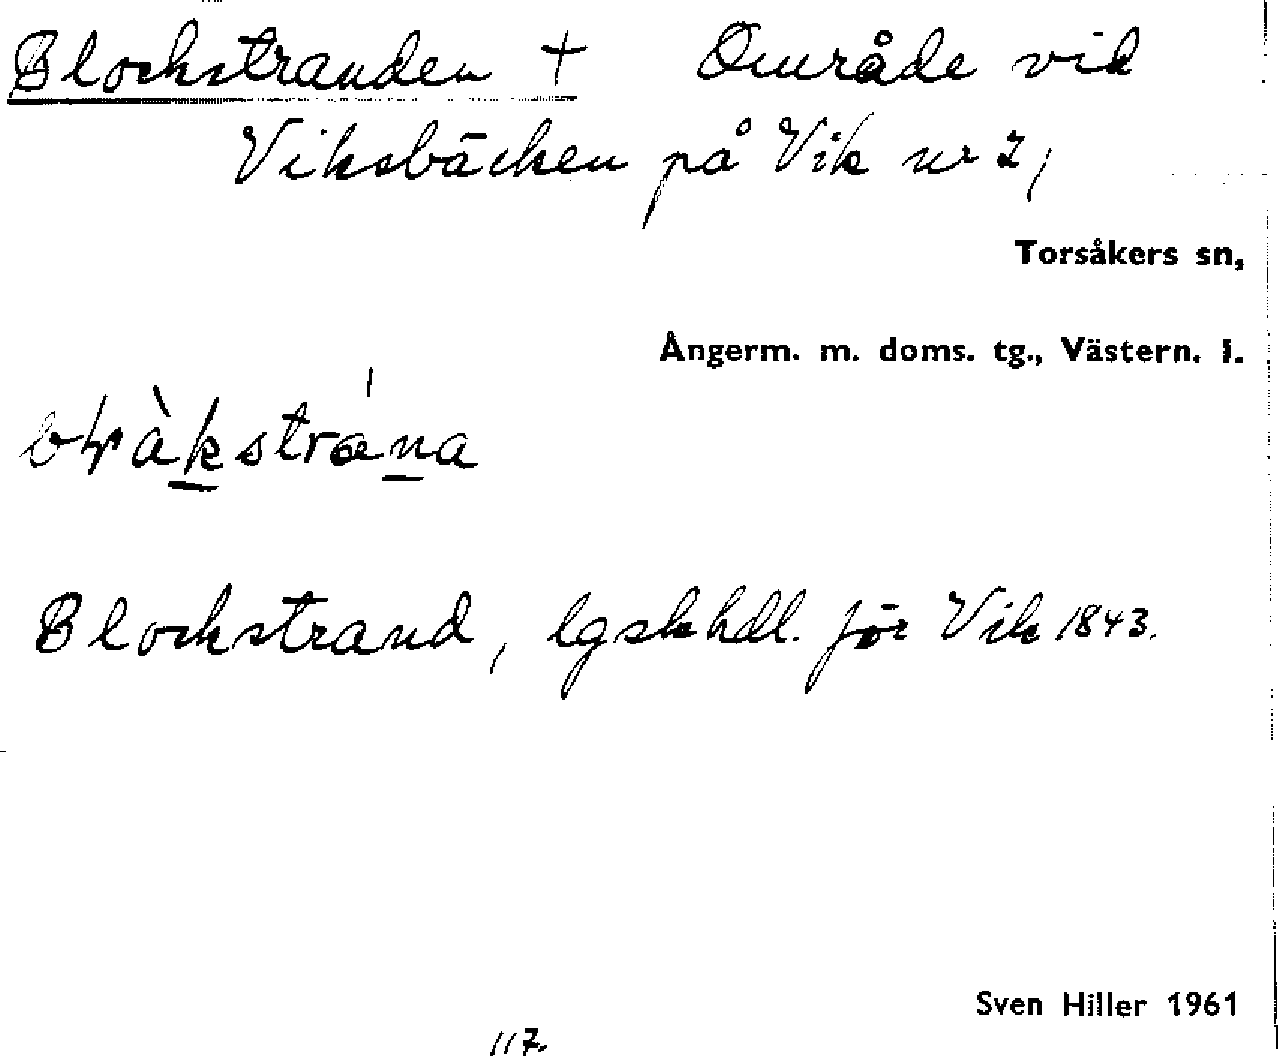 Blockstranden + Område vid
Viksbäcken på Vik nr 2,
Torsåkers sn,
Ångerm. m. doms. tg., Västern. l.
Blockstrand, lgskhdl. för Vik 1843.
Sven Hiller 1961
117.